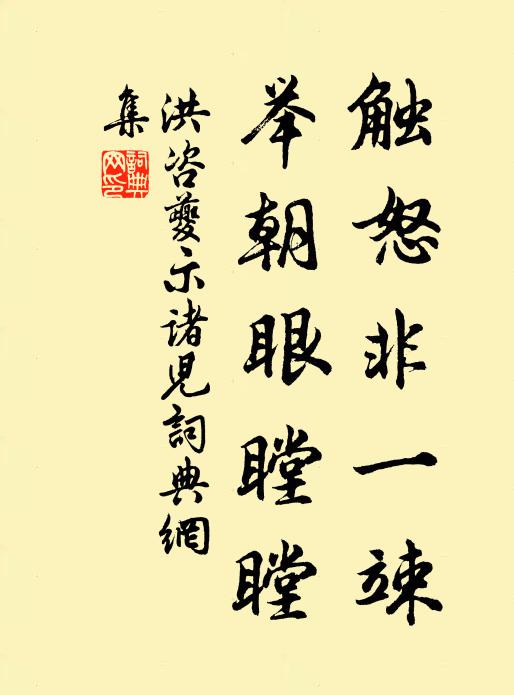 触怒非一竦
举朝眼瞠瞠
洪咨夔示诸児詞典網
集
詞典网印